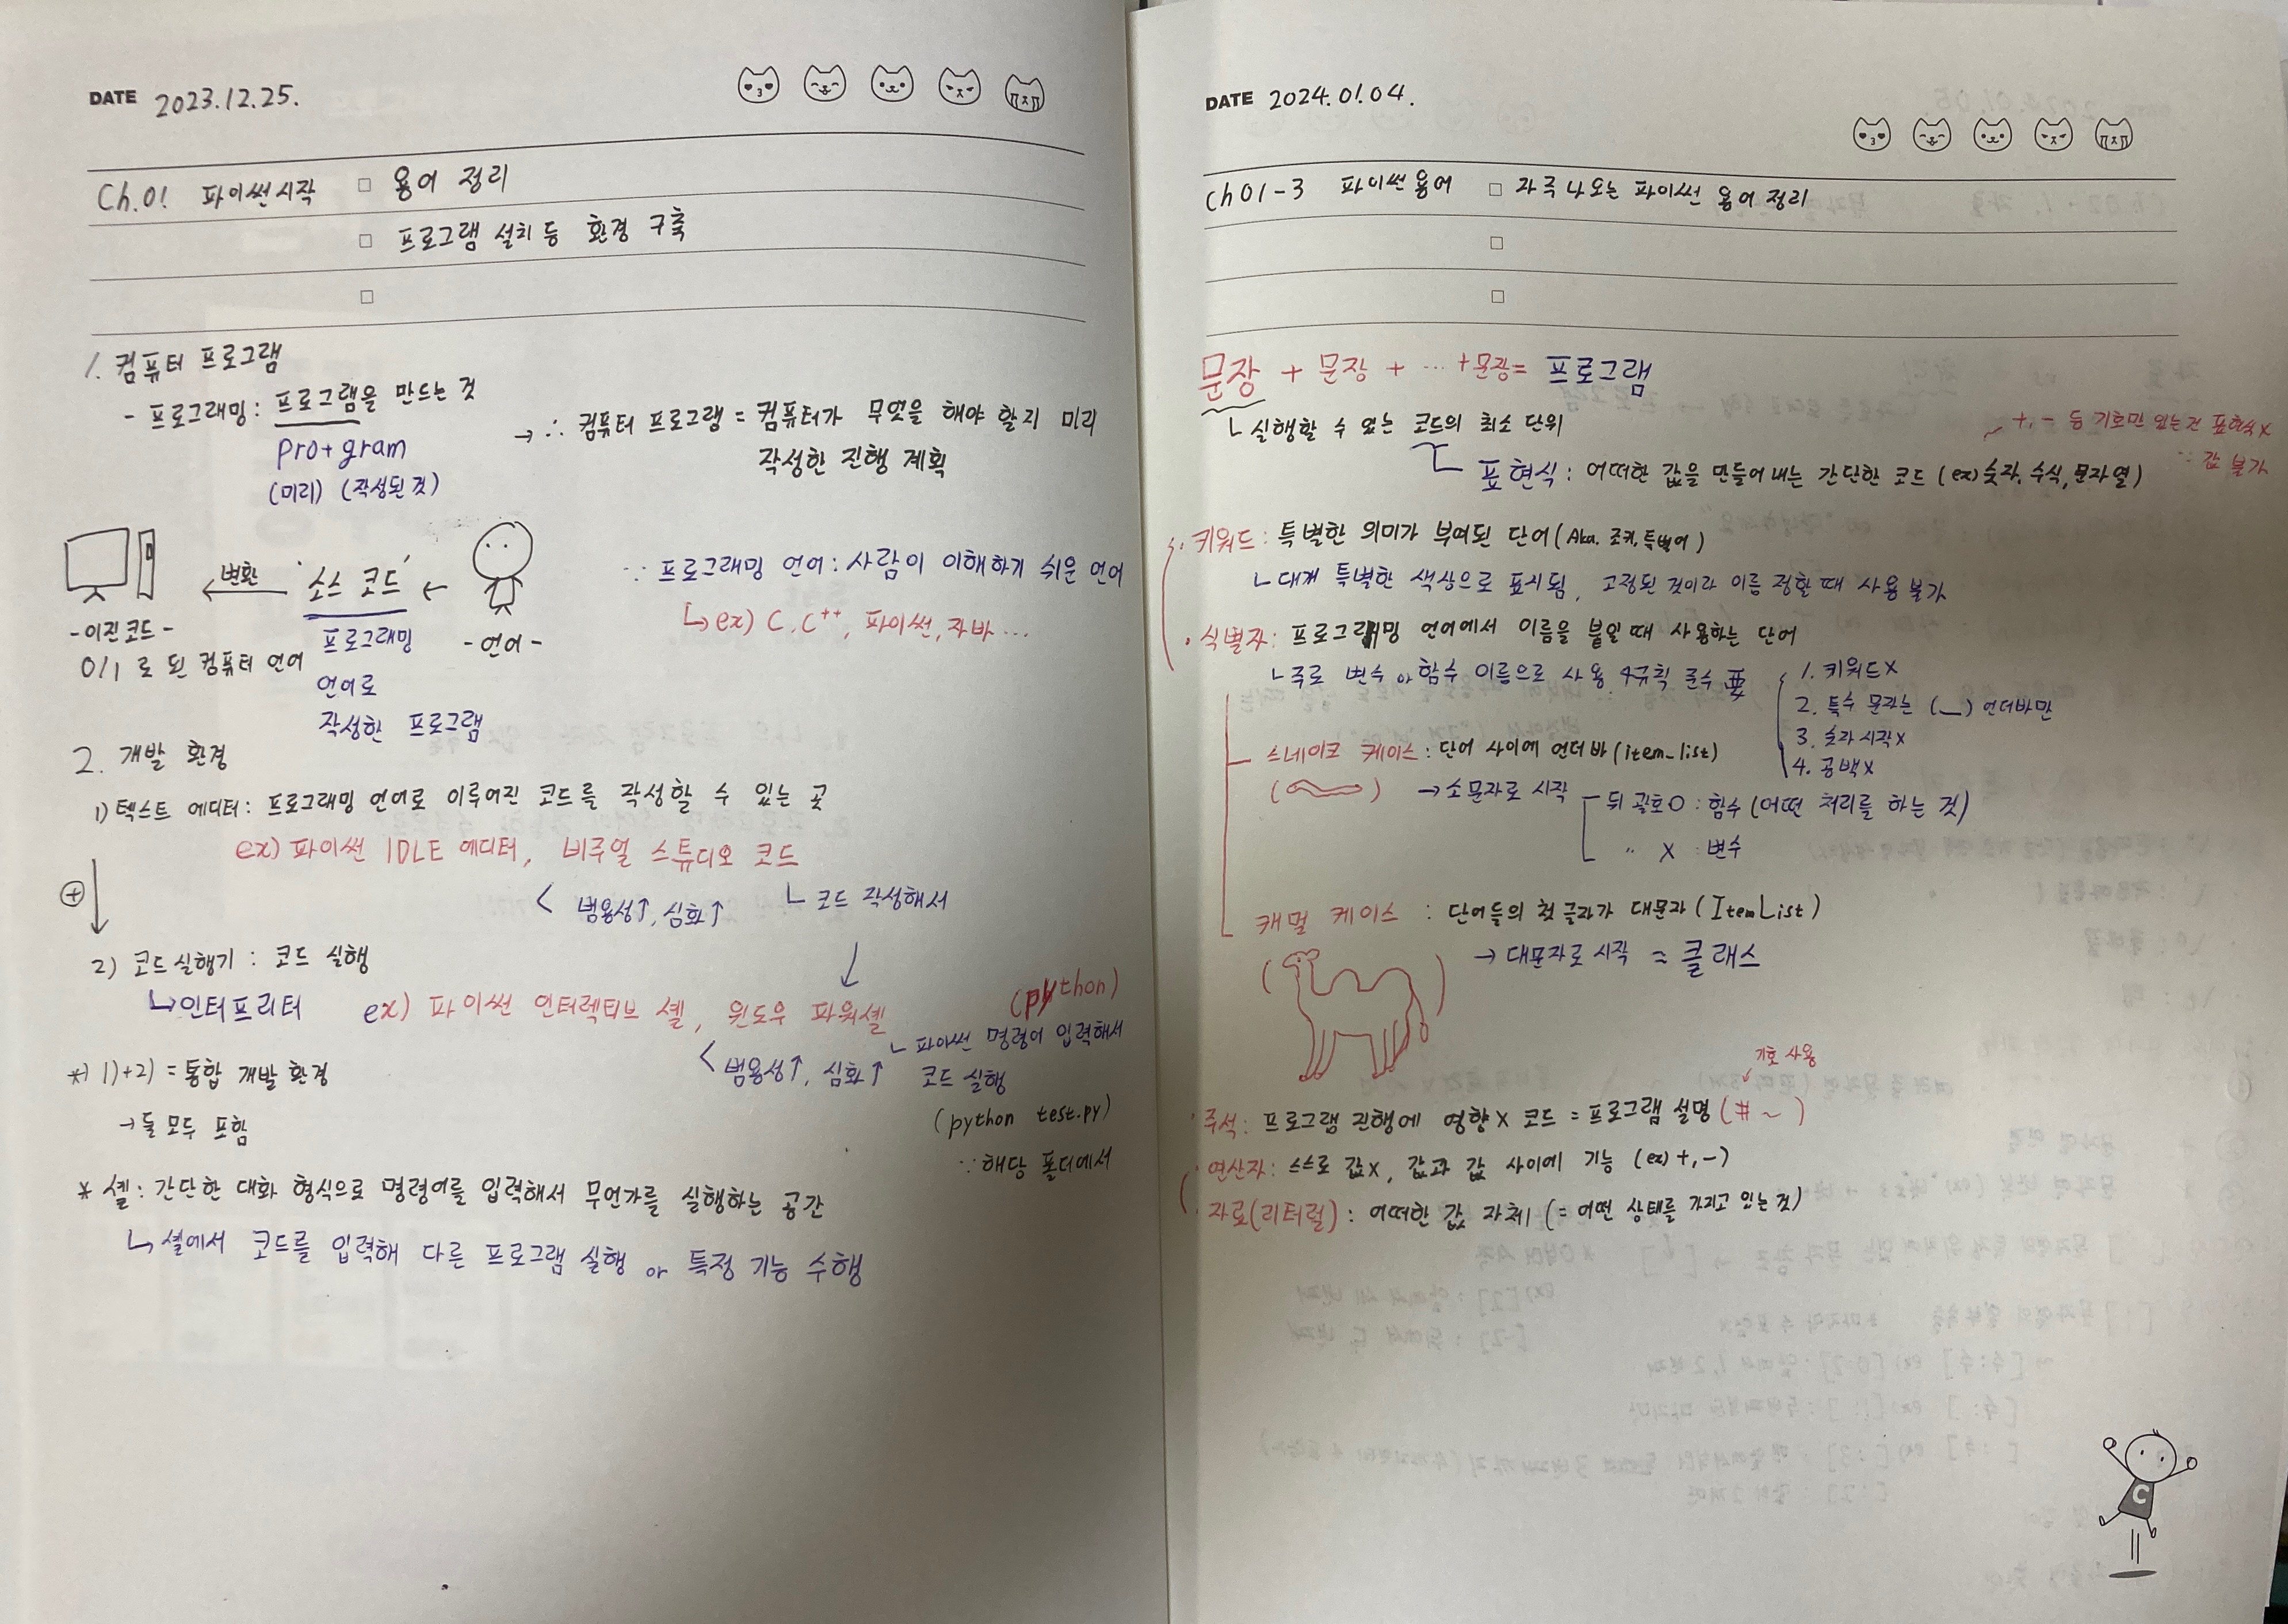 DATE 2023.12.25.
Ch.01 파이썬 시작 □ 용어 정리
□ 프로그램 설치 등 환경 구축
□
1. 컴퓨터 프로그램
- 프로그래밍: 프로그램을 만드는 것
pro + gram
(미리) (작성된 것)
→ ∴ 컴퓨터 프로그램 = 컴퓨터가 무엇을 해야 할지 미리
작성한 진행 계획
변환
'소스 코드'
-이진코드-
0/1 로 된 컴퓨터 언어
프로그래밍
언어로
작성한 프로그램
-언어-
∵ 프로그래밍 언어: 사람이 이해하기 쉬운 언어
↳ ex) C, C++, 파이썬, 자바 …
2. 개발 환경
1) 텍스트 에디터: 프로그래밍 언어로 이루어진 코드를 작성할 수 있는 곳
ex) 파이썬 IDLE 에디터, 비주얼 스튜디오 코드
< 범용성↑, 심화↑
└ 코드 작성해서
⊕ ↓
2) 코드 실행기: 코드 실행
↳ 인터프리터 ex) 파이썬 인터렉티브 셸, 윈도우 파워셸
(python)
< 범용성↑, 심화↑
└ 파이썬 명령어 입력해서
코드 실행
(python test.py)
∵ 해당 폴더에서
*) 1)+2) = 통합 개발 환경
→ 둘 모두 포함
* 셸: 간단한 대화 형식으로 명령어를 입력해서 무언가를 실행하는 공간
↳ 셸에서 코드를 입력해 다른 프로그램 실행 or 특정 기능 수행
DATE 2024.01.04.
Ch 01-3 파이썬 용어 □ 자주 나오는 파이썬 용어 정리
□
□
문장 + 문장 + … + 문장 = 프로그램
└ 실행할 수 있는 코드의 최소 단위
└ 표현식: 어떠한 값을 만들어내는 간단한 코드 (ex) 숫자, 수식, 문자열)
+, - 등 기호만 있는건 표현식X
∵ 값 불가
· 키워드: 특별한 의미가 부여된 단어 (Aka. 조커, 특별어)
└ 대개 특별한 색상으로 표시됨, 고정된 것이라 이름 정할 때 사용 불가
· 식별자: 프로그래밍 언어에서 이름을 붙일 때 사용하는 단어
└ 주로 변수 or 함수 이름으로 사용 4규칙 준수
1. 키워드X
2. 특수 문자는 (_) 언더바만
3. 숫자 시작X
4. 공백X
스네이크 케이스: 단어 사이에 언더바 (item_list)
→ 소문자로 시작
뒤 괄호O: 함수 (어떤 처리를 하는 것)
〃 X: 변수
캐멀 케이스: 단어들의 첫 글자가 대문자 (ItemList)
→ 대문자로 시작 = 클래스
기호 사용
· 주석: 프로그램 진행에 영향X 코드 = 프로그램 설명 (# ~ )
· 연산자: 스스로 값X, 값과 값 사이에 기능 (ex) +, -)
· 자료(리터럴): 어떠한 값 자체 (= 어떤 상태를 가지고 있는 것)
C